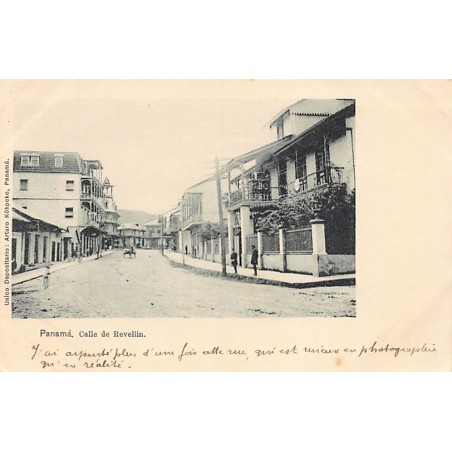 Unico Depositario: Arturo Köhpcke, Panamá.
Panamá, Calle de Revellin.
J'ai arpenté plus d'une fois cette rue, qui est mieux en photographie
qu'en réalité.